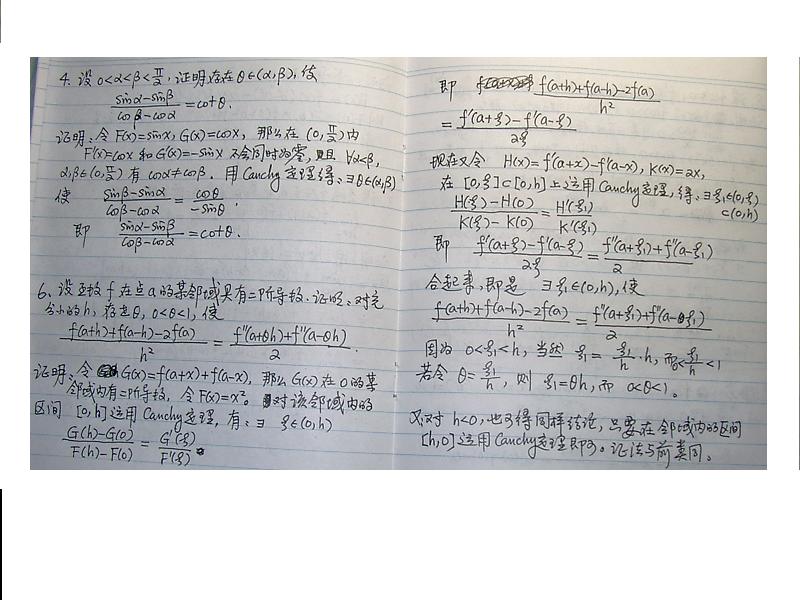 4. 设 0<α<β<π/2, 证明存在 θ∈(α,β), 使
(sinα-sinβ)/(cosβ-cosα) = cotθ.
证明: 令 F(x)=sinx, G(x)=cosx, 那么在 (0, π/2) 内
F'(x)=cosx 和 G'(x)=-sinx 不会同时为零, 且 ∀α<β,
α,β∈(0,π/2) 有 cosα≠cosβ. 用 Cauchy 定理得: ∃θ∈(α,β)
使 (sinβ-sinα)/(cosβ-cosα) = cosθ/(-sinθ).
即 (sinα-sinβ)/(cosβ-cosα) = cotθ.
6. 设函数 f 在点 a 的某邻域具有二阶导数. 证明: 对充
分小的 h, 存在 θ, 0<θ<1, 使
(f(a+h)+f(a-h)-2f(a))/h² = (f''(a+θh)+f''(a-θh))/2.
证明: 令 G(x)=f(a+x)+f(a-x), 那么 G(x) 在 0 的某
邻域内有二阶导数, 令 F(x)=x². 对该邻域内的
区间 [0,h] 运用 Cauchy 定理, 有: ∃ ξ∈(0,h)
(G(h)-G(0))/(F(h)-F(0)) = G'(ξ)/F'(ξ)
即 (f(a+h)+f(a-h)-2f(a))/h²
= (f'(a+ξ)-f'(a-ξ))/2ξ
现在又令 H(x)=f'(a+x)-f'(a-x), K(x)=2x,
在 [0,ξ]⊂[0,h] 上运用 Cauchy 定理, 得: ∃ξ₁∈(0,ξ)
⊂(0,h)
(H(ξ)-H(0))/(K(ξ)-K(0)) = H'(ξ₁)/K'(ξ₁)
即 (f'(a+ξ)-f'(a-ξ))/2ξ = (f''(a+ξ₁)+f''(a-ξ₁))/2
合起来, 即是 ∃ξ₁∈(0,h), 使
(f(a+h)+f(a-h)-2f(a))/h² = (f''(a+ξ₁)+f''(a-ξ₁))/2
因为 0<ξ₁<h, 当然 ξ₁=ξ₁/h·h, 而 0<ξ₁/h<1
若令 θ=ξ₁/h, 则 ξ₁=θh, 而 0<θ<1.
又对 h<0, 也可得同样结论, 只要在邻域内的区间
[h,0] 运用 Cauchy 定理即可. 证法与前类同.